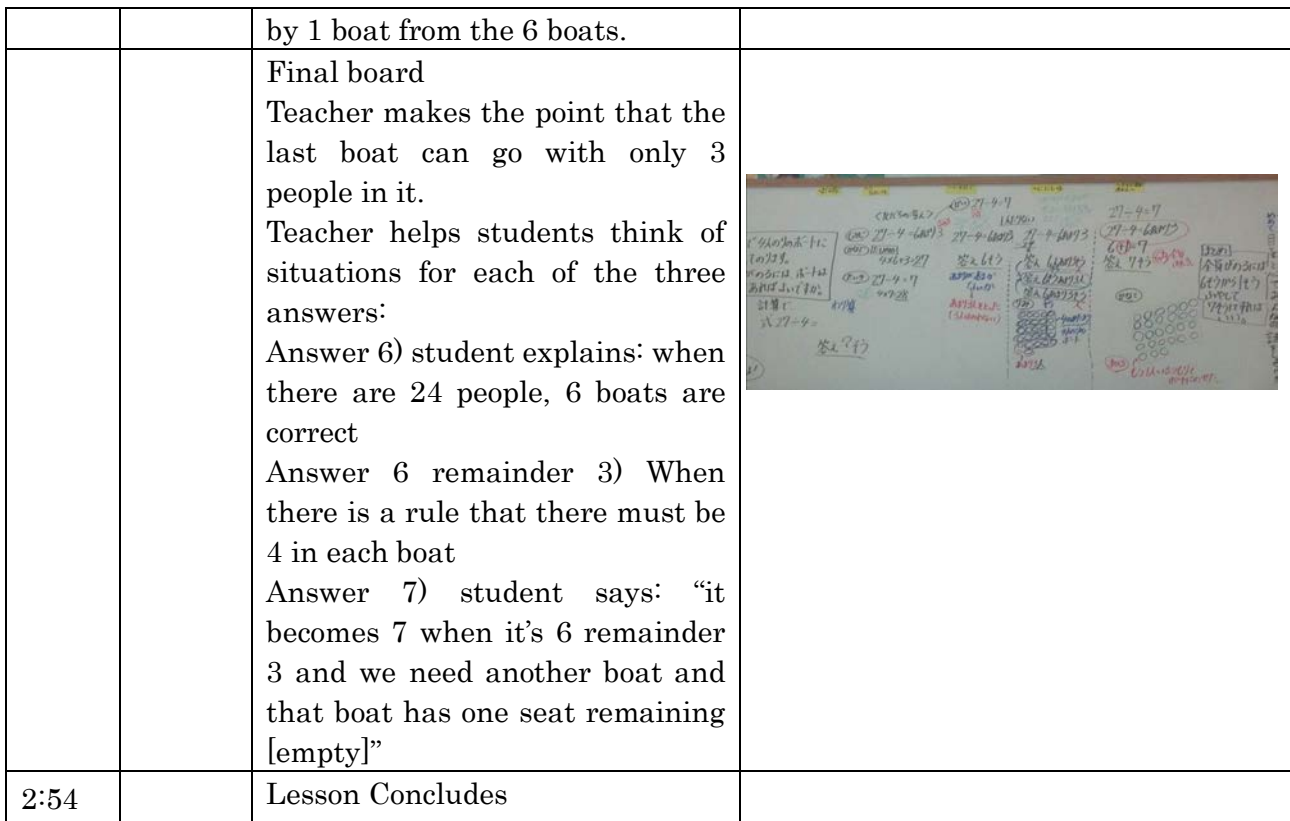 by 1 boat from the 6 boats.
Final board
Teacher makes the point that the
last boat can go with only 3
people in it.
Teacher helps students think of
situations for each of the three
answers:
Answer 6) student explains: when
there are 24 people, 6 boats are
correct
Answer 6 remainder 3) When
there is a rule that there must be
4 in each boat
Answer 7) student says: “it
becomes 7 when it’s 6 remainder
3 and we need another boat and
that boat has one seat remaining
[empty]”
27÷4=7
27÷4=6あまり3
4×6+3=27
27÷4=7
4×7=28
計算で
式 27÷4=
答え ?そう
27÷4=6あまり3
答え 6そう
27÷4=6あまり3
27÷4=7
27÷4=6あまり3
6+1=7
答え 7そう
2:54
Lesson Concludes